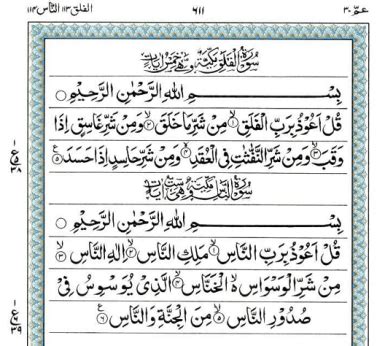 الفلق ١١٣ الناس ١١٤ ٦١١ عمّ ٣٠
سُوْرَةُ الْفَلَقِ مَكِّيَّةٌ وَّهِيَ خَمْسُ اٰيَاتٍ
بِسْمِ اللّٰهِ الرَّحْمٰنِ الرَّحِيْمِ ○
قُلْ اَعُوْذُ بِرَبِّ الْفَلَقِ ۙ﴿۱﴾ مِنْ شَرِّ مَا خَلَقَ ۙ﴿۲﴾ وَمِنْ شَرِّ غَاسِقٍ اِذَا
وَقَبَ ۙ﴿۳﴾ وَمِنْ شَرِّ النَّفّٰثٰتِ فِي الْعُقَدِ ۙ﴿۴﴾ وَمِنْ شَرِّ حَاسِدٍ اِذَا حَسَدَ ﴿۵﴾
سُوْرَةُ النَّاسِ مَكِّيَّةٌ وَّهِيَ سِتُّ اٰيَاتٍ
بِسْمِ اللّٰهِ الرَّحْمٰنِ الرَّحِيْمِ ○
قُلْ اَعُوْذُ بِرَبِّ النَّاسِ ۙ﴿۱﴾ مَلِكِ النَّاسِ ۙ﴿۲﴾ اِلٰهِ النَّاسِ ۙ﴿۳﴾
مِنْ شَرِّ الْوَسْوَاسِ ۙ۬ الْخَنَّاسِ ۙ﴿۴﴾ الَّذِيْ يُوَسْوِسُ فِيْ
صُدُوْرِ النَّاسِ ۙ﴿۵﴾ مِنَ الْجِنَّةِ وَالنَّاسِ ﴿۶﴾